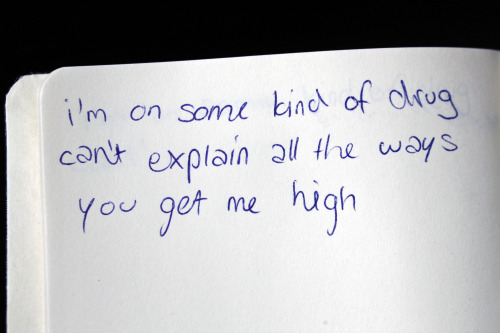 i'm on some kind of drug
can't explain all the ways
you get me high